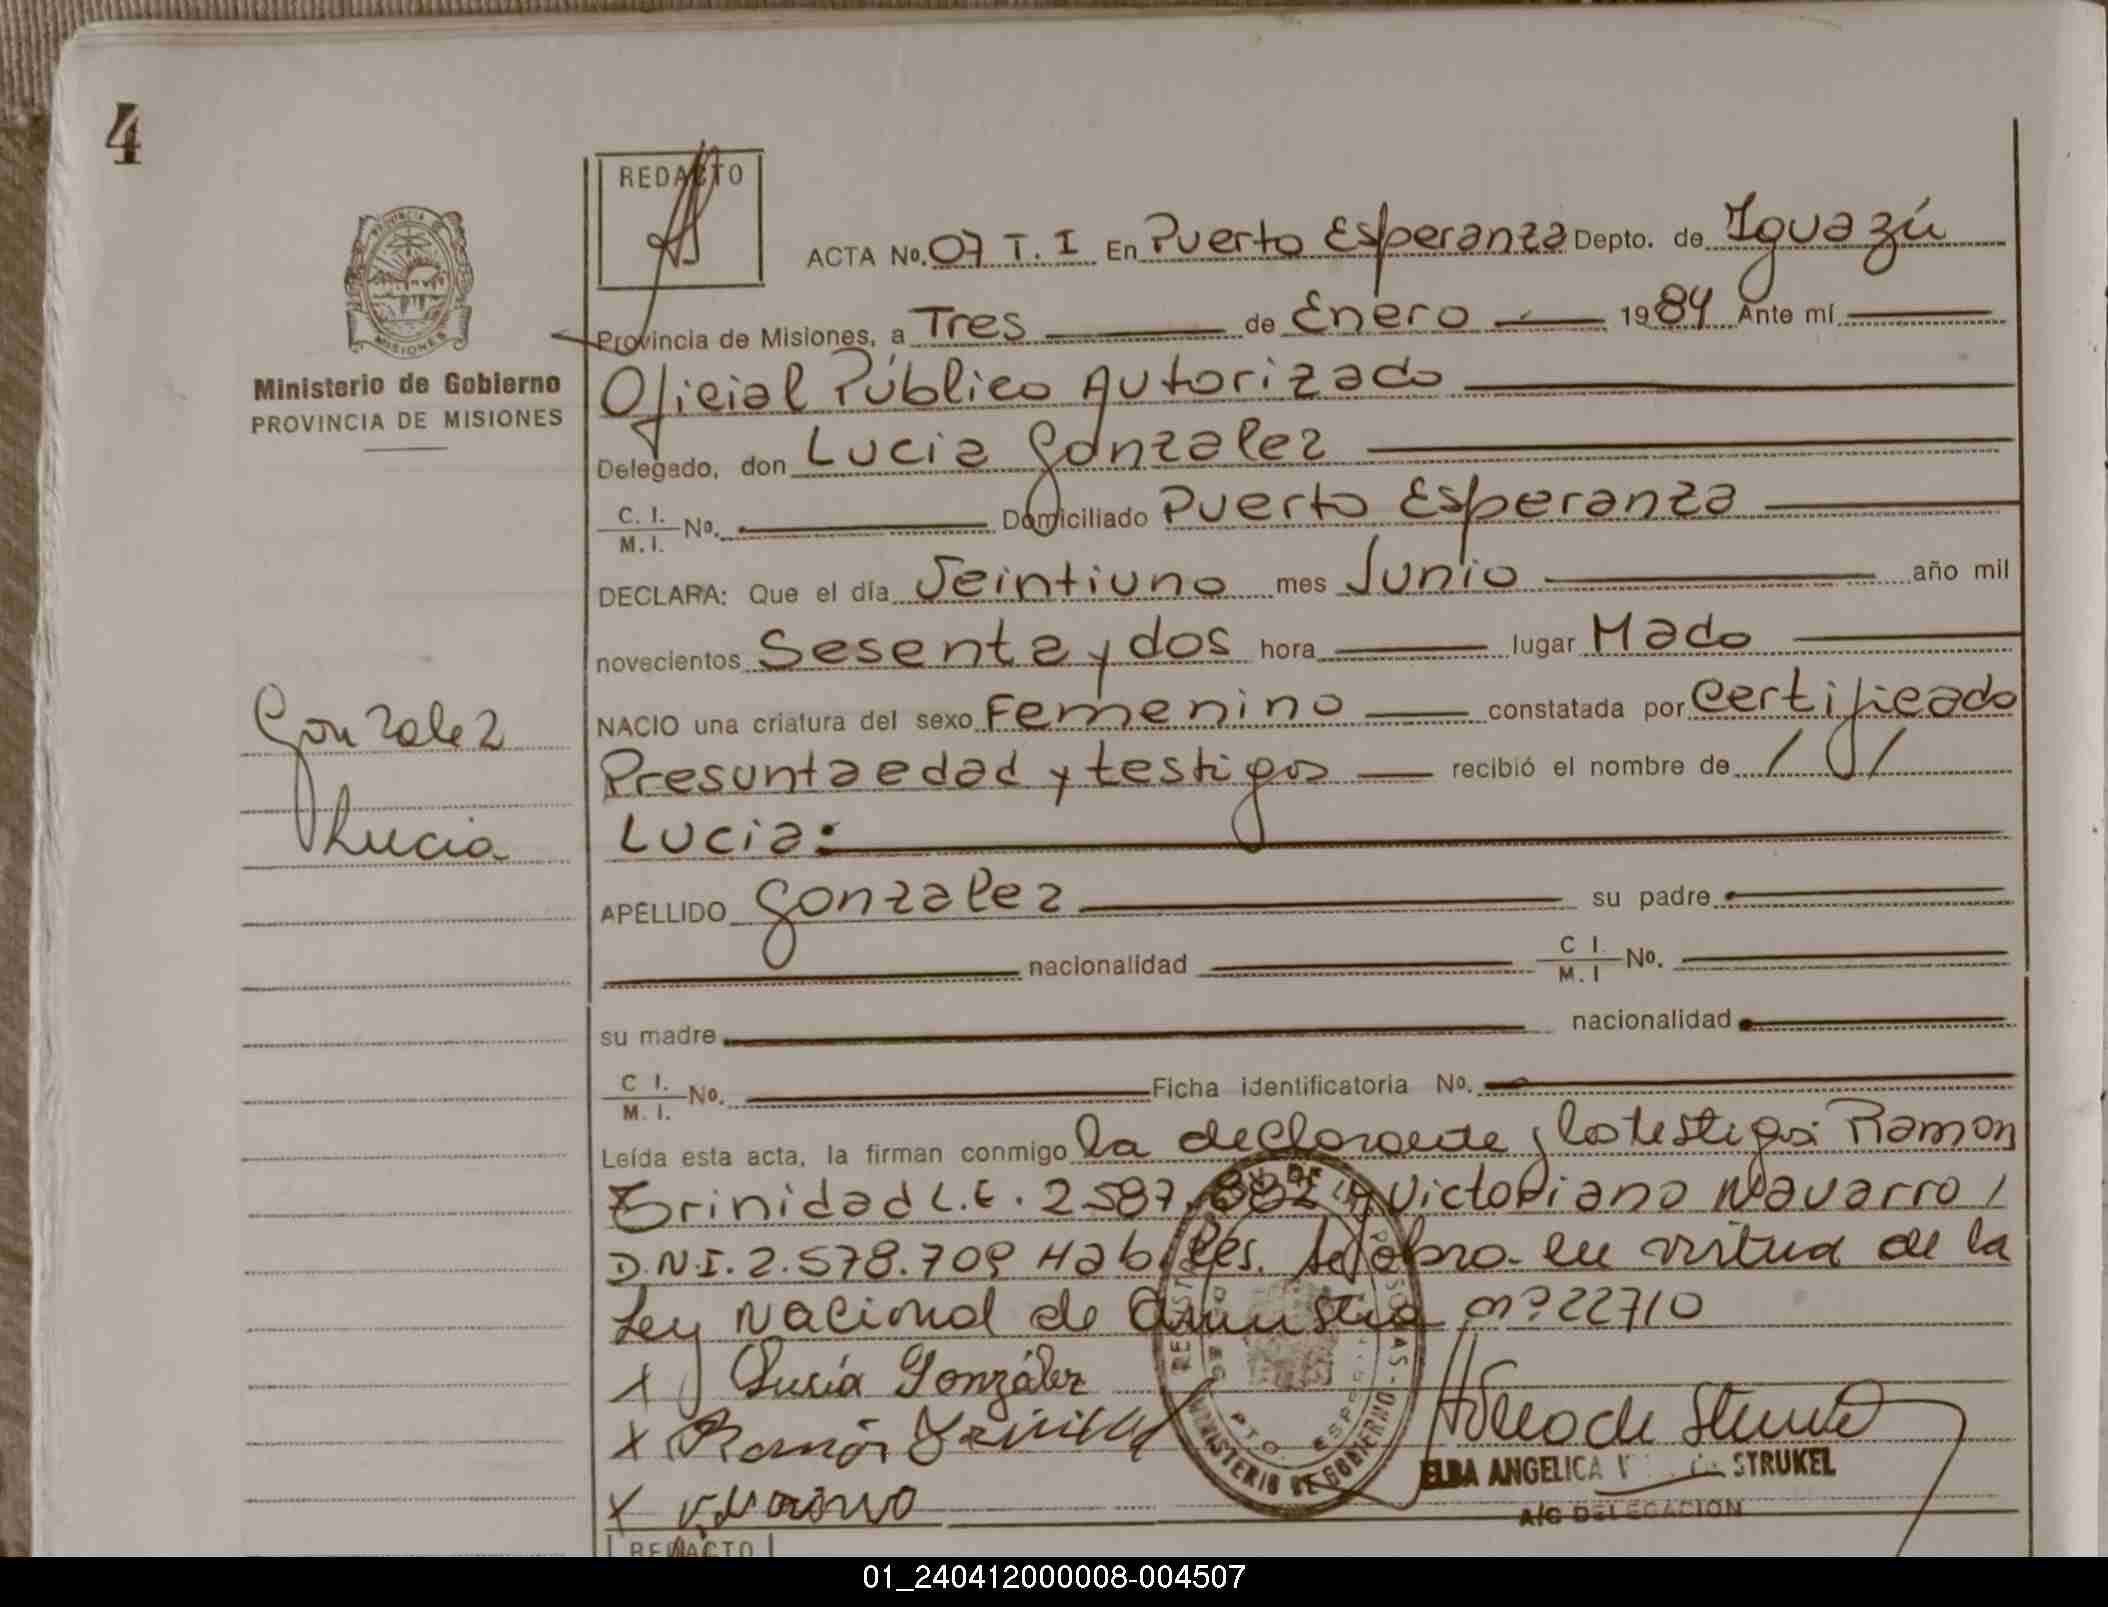 4
REDACTO
ACTA No. 07 T. I En Puerto Esperanza Depto. de Iguazú
Provincia de Misiones, a Tres de Enero 1984 Ante mí
Oficial Público Autorizado
Delegado, don Lucia Gonzalez
C. I. M. I. No. Domiciliado Puerto Esperanza
DECLARA: Que el día Veintiuno mes Junio año mil
novecientos Sesenta y dos hora lugar Mado
NACIO una criatura del sexo Femenino constatada por Certificado
Presunta edad y testigos recibió el nombre de / /
Lucia:
APELLIDO Gonzalez su padre
nacionalidad C I. M. I No.
su madre nacionalidad
C I. M. I. No. Ficha identificatoria No.
Leída esta acta, la firman conmigo la declarante y los testigos Ramon
Trinidad L.E. 2587.882 y Victoriano Navarro /
D.N.I. 2.578.709 Habiles. se labro en virtud de la
Ley Nacional de Amnistia nº 22710
X Lucía González
X Ramón Trinidad
X V. Navarro
ELBA ANGELICA STRUKEL
A/C DELEGACION
REDACTO
PROVINCIA
MISIONES
Ministerio de Gobierno
PROVINCIA DE MISIONES
Gonzalez
Lucia
MINISTERIO DE GOBIERNO
PTO.
01_240412000008-004507